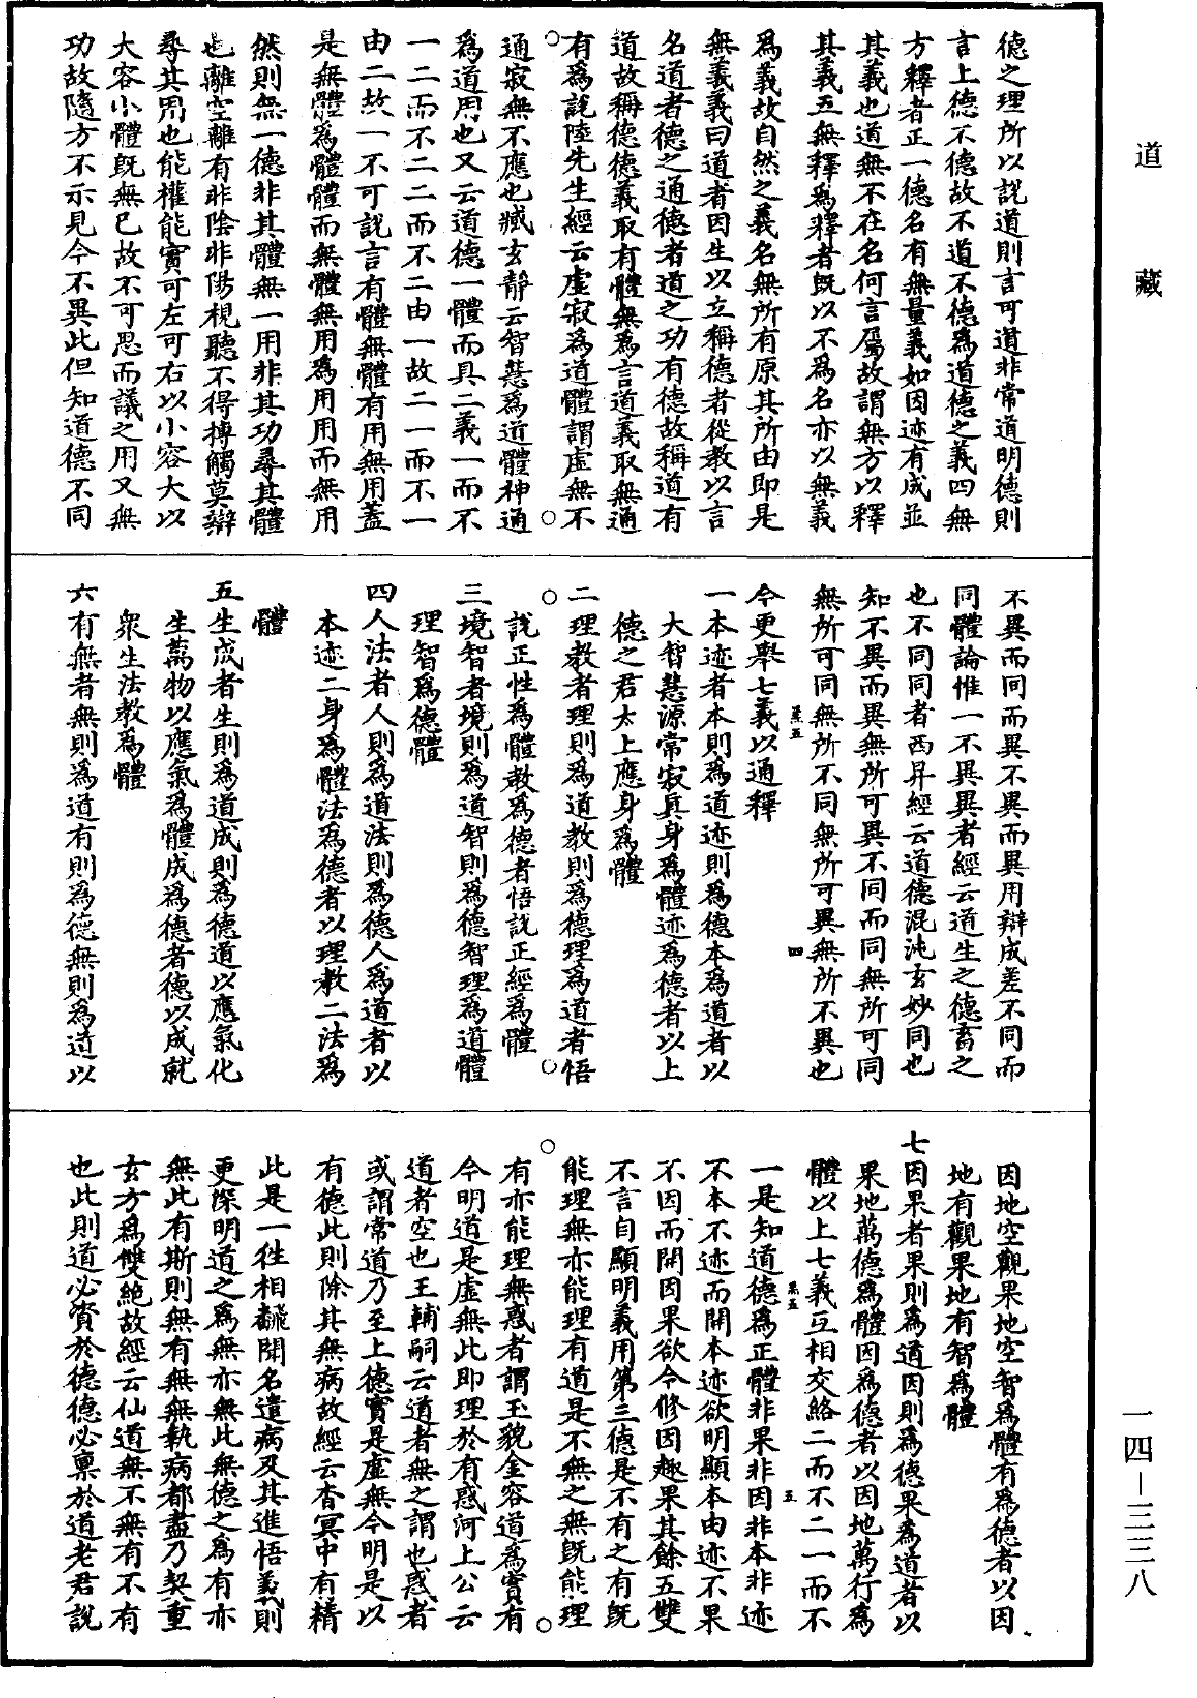 道藏
德之理所以說道則言可道非常道明德則
言上德不德故不道不德爲道德之義四無
方釋者正一德名有無量義如因迹有成並
其義也道無不在名何言屬故謂無方以釋
其義五無釋爲釋者旣以不爲名亦以無義
爲義故自然之義名無所有原其所由即是
無義義曰道者因生以立稱德者從教以言
名道者德之通德者道之功有德故稱道有
道故稱德德義取有體無爲言道義取無通
有爲說陸先生經云虛寂爲道體謂虛無不
通寂無不應也臧玄靜云智慧爲道體神通
爲道用也又云道德一體而具二義一而不
一二而不二二而不二由一故二一而不一
由二故一不可說言有體無體有用無用蓋
是無體爲體體而無體無用爲用用而無用
然則無一德非其體無一用非其功尋其體
也離空離有非陰非陽視聽不得摶觸莫辯
尋其用也能權能實可左可右以小容大以
大容小體旣無已故不可思而議之用又無
功故隨方不示見今不異此但知道德不同
不異而同而異不異而異用辯成差不同而
同體論惟一不異異者經云道生之德畜之
也不同同者西昇經云道德混沌玄妙同也
知不異而異無所可異不同而同無所可同
無所可同無所不同無所可異無所不異也
今更舉七義以通釋
一本迹者本則爲道迹則爲德本爲道者以
大智慧源常寂真身爲體迹爲德者以上
德之君太上應身爲體
二理教者理則爲道教則爲德理爲道者悟
說正性爲體教爲德者悟說正經爲體
三境智者境則爲道智則爲德智理爲道體
理智爲德體
四人法者人則爲道法則爲德人爲道者以
本迹二身爲體法爲德者以理教二法爲
體
五生成者生則爲道成則爲德道以應氣化
生萬物以應氣爲體成爲德者德以成就
衆生法教爲體
六有無者無則爲道有則爲德無則爲道以
因地空觀果地空智爲體有爲德者以因
地有觀果地有智爲體
七因果者果則爲道因則爲德果爲道者以
果地萬德爲體因爲德者以因地萬行爲
體以上七義互相交絡二而不二一而不
一是知道德爲正體非果非因非本非迹
不本不迹而開本迹欲明顯本由迹不果
不因而開因果欲令修因趣果其餘五雙
不言自顯明義用第三德是不有之有旣
能理無亦能理有道是不無之無旣能理
有亦能理無惑者謂玉貌金容道爲實有
今明道是虛無此即理於有惑河上公云
道者空也王輔嗣云道者無之謂也惑者
或謂常道乃至上德實是虛無今明是以
有德此則除其無病故經云杳冥中有精
此是一徃相翻開名遣病及其進悟義則
更深明道之爲無亦無此無德之爲有亦
無此有斯則無有無無執病都盡乃契重
玄方爲雙絶故經云仙道無不無有不有
也此則道必資於德德必稟於道老君說
一四—三三八